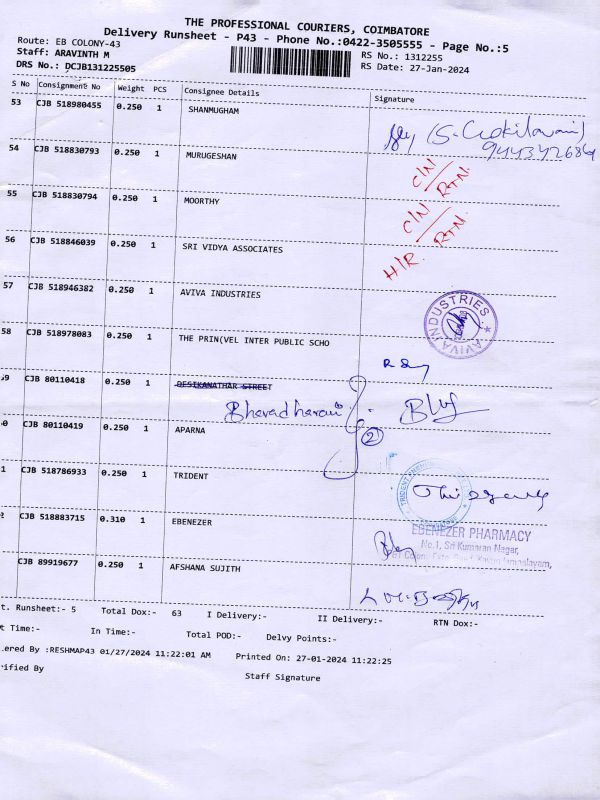 THE PROFESSIONAL COURIERS, COIMBATORE
Delivery Runsheet - P43 - Phone No.:0422-3505555 - Page No.:5
Route: EB COLONY-43
Staff: ARAVINTH M
DRS No.: DCJB131225505
RS No.: 1312255
RS Date: 27-Jan-2024
S No Consignment No Weight PCS Consignee Details Signature
53 CJB 518980455 0.250 1 SHANMUGHAM
(S. Gokilavani)
944342684
54 CJB 518830793 0.250 1 MURUGESHAN C/N RTN
55 CJB 518830794 0.250 1 MOORTHY C/N RTN
56 CJB 518846039 0.250 1 SRI VIDYA ASSOCIATES H/R
57 CJB 518946382 0.250 1 AVIVA INDUSTRIES AVIVA INDUSTRIES
58 CJB 518978083 0.250 1 THE PRIN(VEL INTER PUBLIC SCHO
9 CJB 80110418 0.250 1 DESIKANATHAR STREET
Bharadharani
2
0 CJB 80110419 0.250 1 APARNA
1 CJB 518786933 0.250 1 TRIDENT TRIDENT
2 CJB 518883715 0.310 1 EBENEZER EBENEZER PHARMACY
No.1, Sri Kumaran Nagar,
CJB 89919677 0.250 1 AFSHANA SUJITH
t. Runsheet:- 5 Total Dox:- 63 I Delivery:- II Delivery:- RTN Dox:-
t Time:- In Time:- Total POD:- Delvy Points:-
ered By :RESHMAP43 01/27/2024 11:22:01 AM Printed On: 27-01-2024 11:22:25
rified By Staff Signature